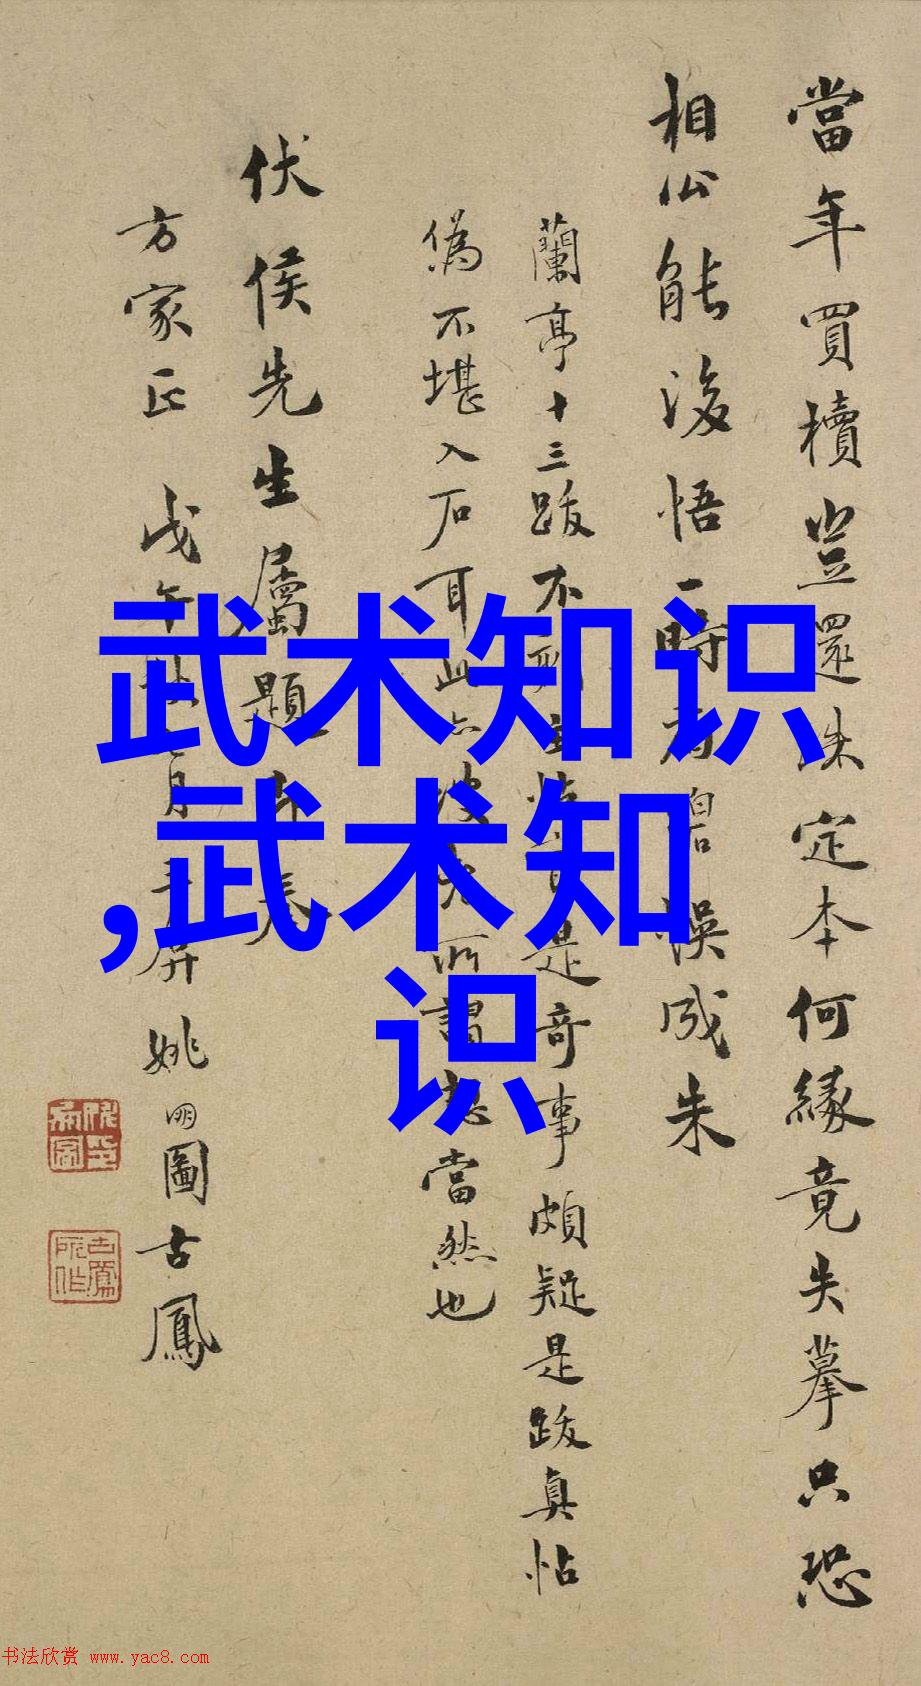 當年買櫝豈還珠定本何緣竟失摹只恐
相公能後悟一時有碧誤成朱
蘭亭十三跋不 是奇事頗疑是跋真帖
偽不堪入石耳此 所謂 當然也
伏侯先生屬題
方家正 戊午 姚明圖古鳳
武术知识
,武术知
识
书法欣赏 www.yac8.com